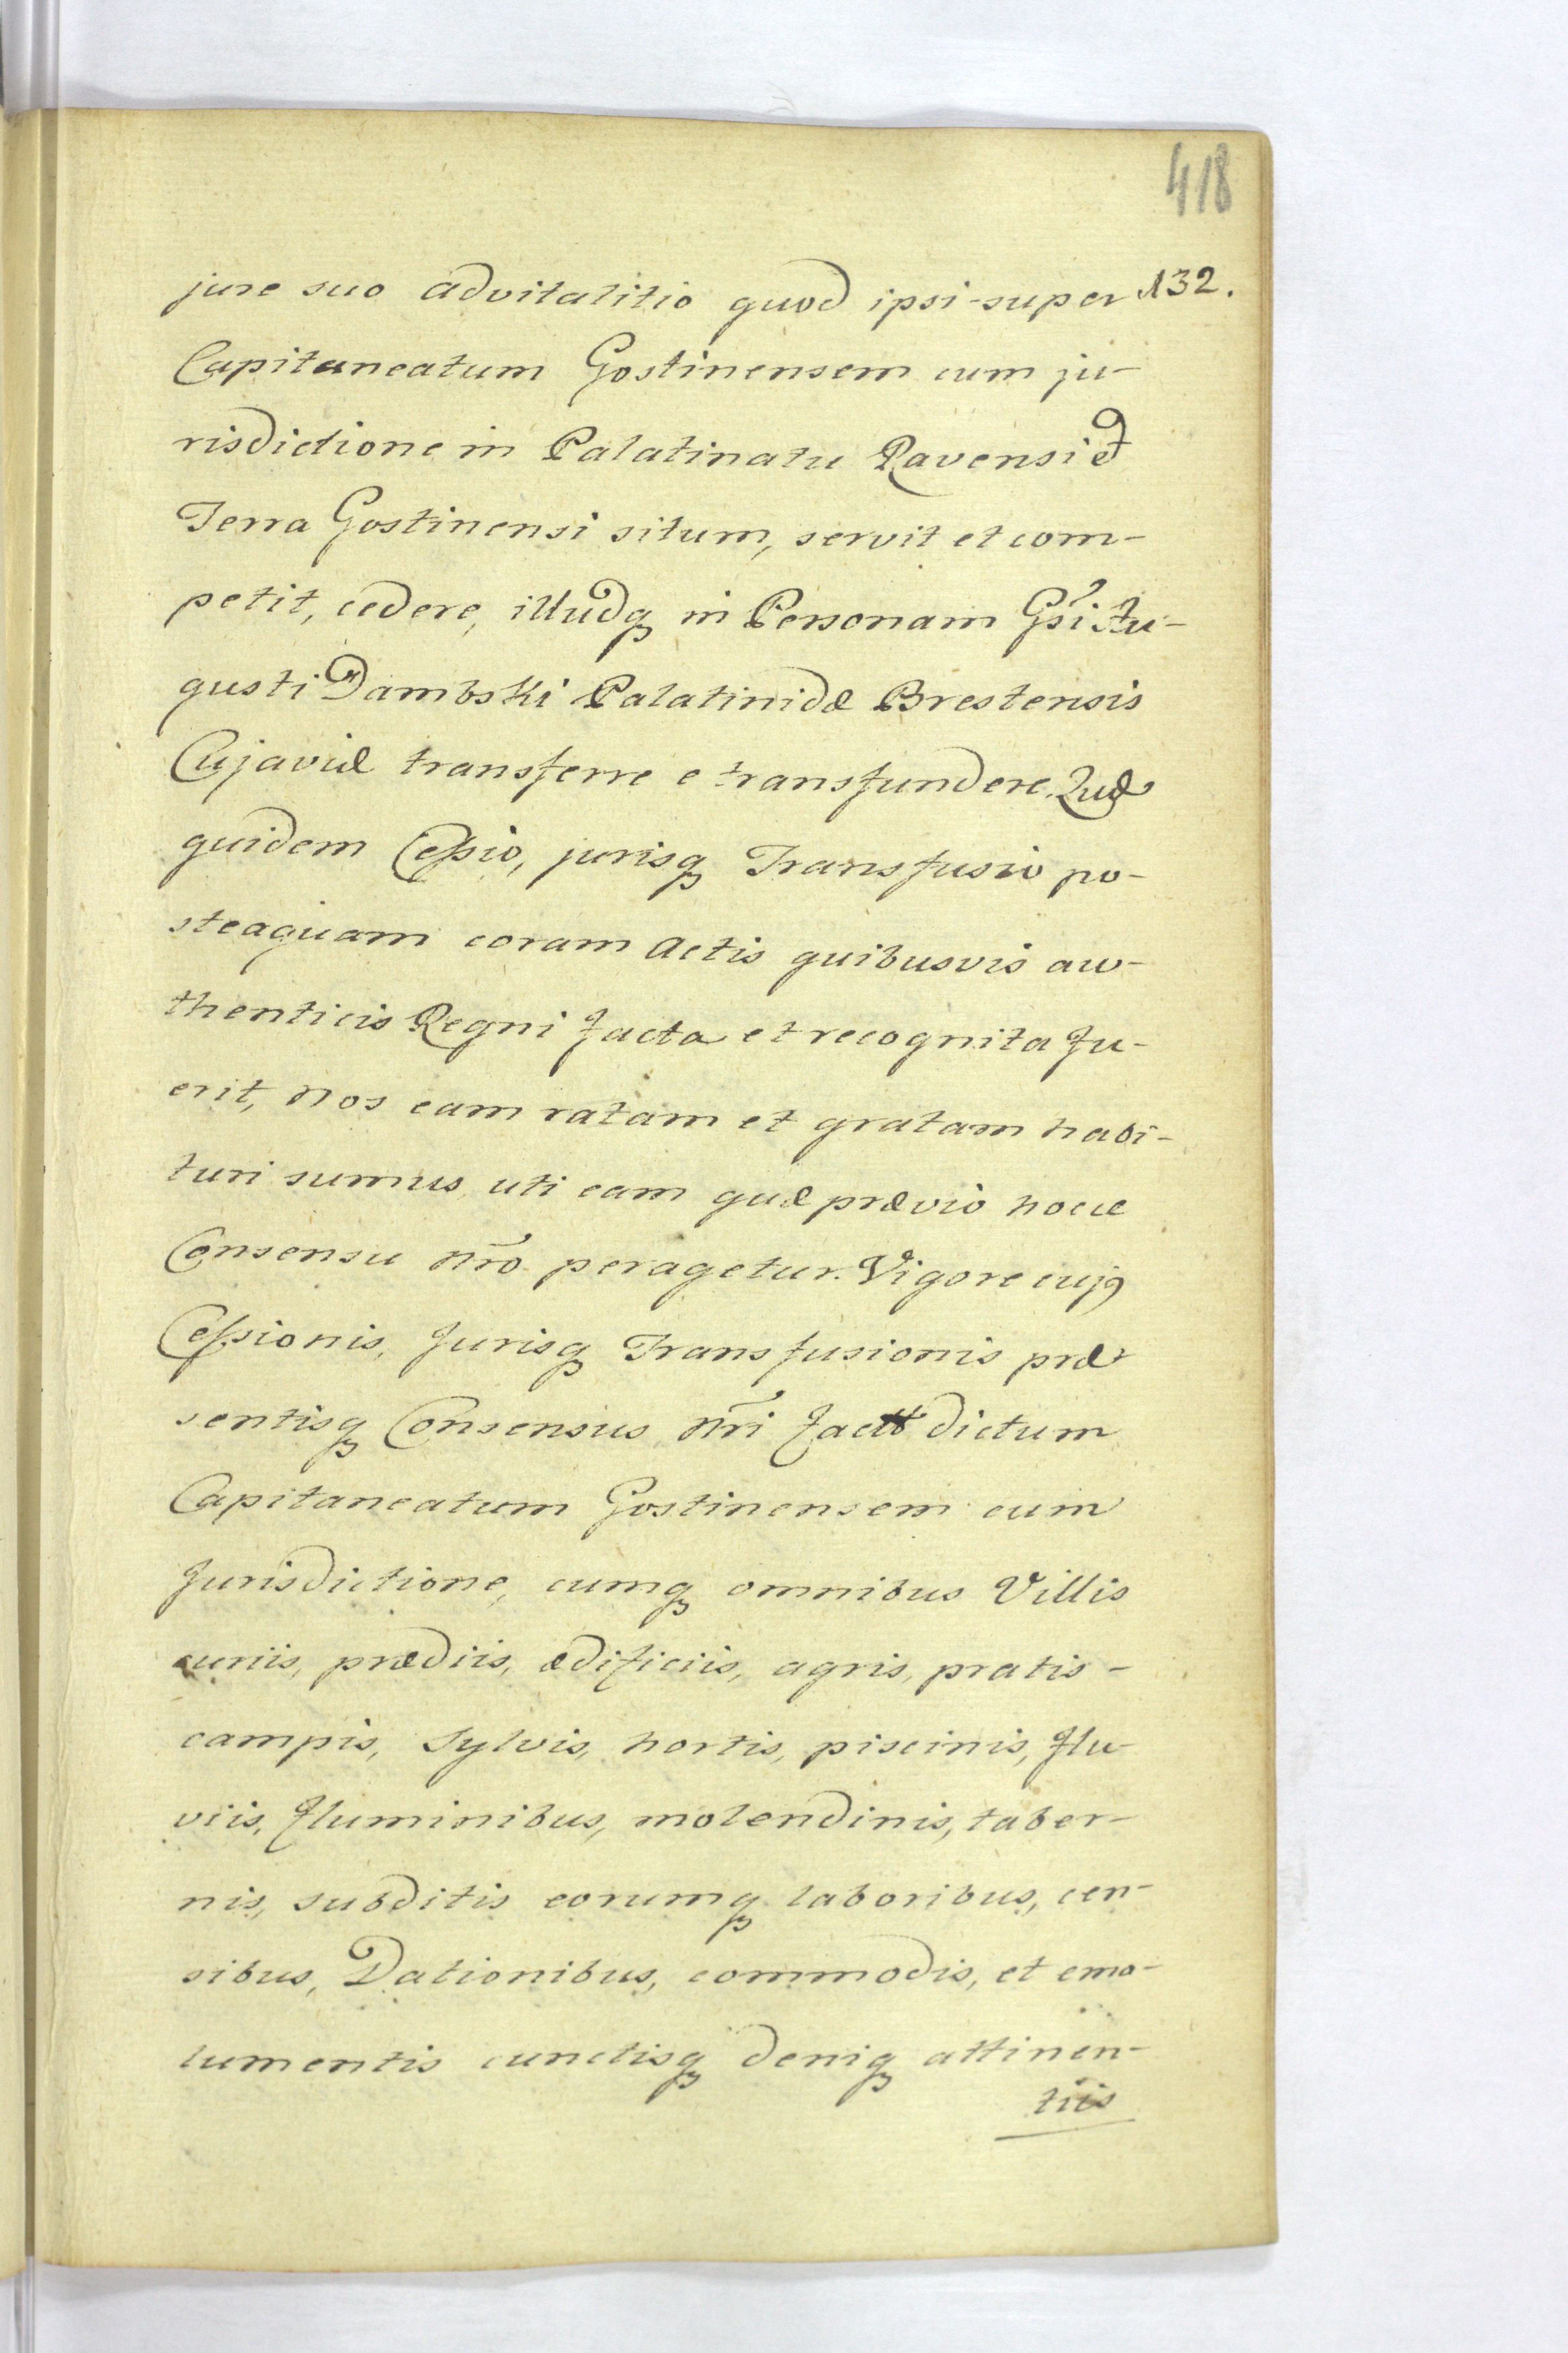 418
132.
jure suo advitalitio quod ipsi super
Capitaneatum Gostinensem cum ju-
risdictione in Palatinatu Ravensi et
Terra Gostinensi situm, servit et com-
petit, cedere, illudq in Personam Gsi Au-
gusti Dambski Palatinidæ Brestensis
Cujaviæ transferre e transfundere. Quæ
quidem Cessio, jurisq Transfusio po-
steaquam coram Actis quibusvis au-
thenticis Regni facta et recognita fu-
erit, Nos eam ratam et gratam habi-
turi sumus uti eam quæ prævio hocce
Consensu Nro peragetur. Vigore cujus
Cessionis, Jurisq Transfusionis præ
sentisq Consensus Nri dictum
Capitaneatum Gostinensem cum
Jurisdictione, cumq omnibus Villis
curiis, prædiis, ædificiis, agris, pratis-
campis, Sylvis, hortis, piscinis, flu-
viis, fluminibus, molendinis, taber-
nis, subditis eorumq laboribus, cen-
sibus, Dationibus, commodis, et emo-
lumentis cunctisq deniq attinen-
tiis